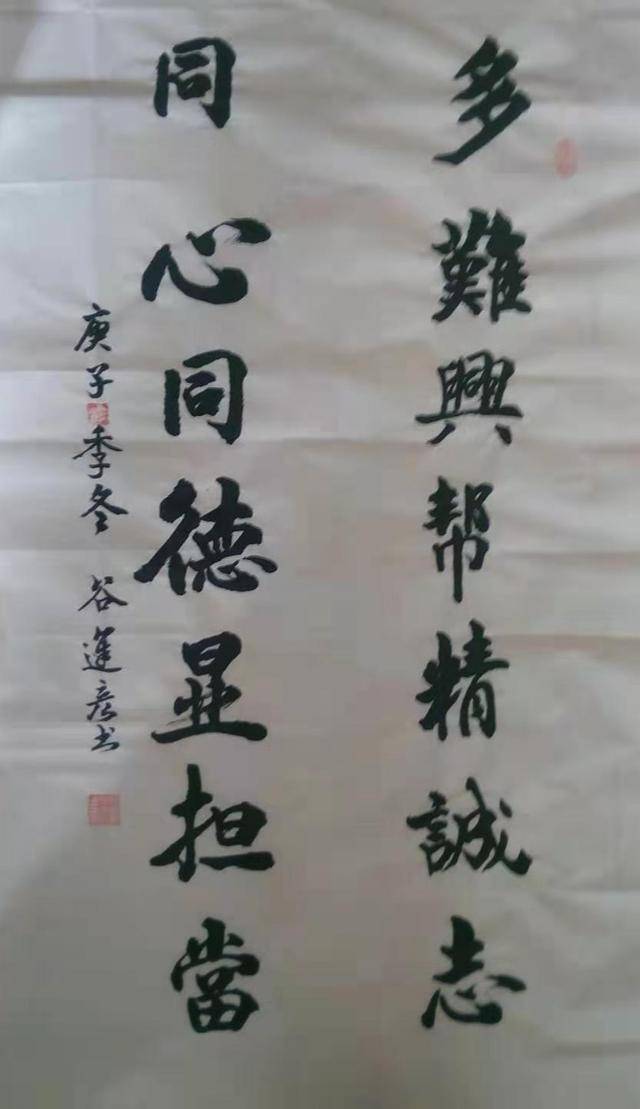 多難興帮精誠志
同心同德显担當
庚子季冬 谷進彦书